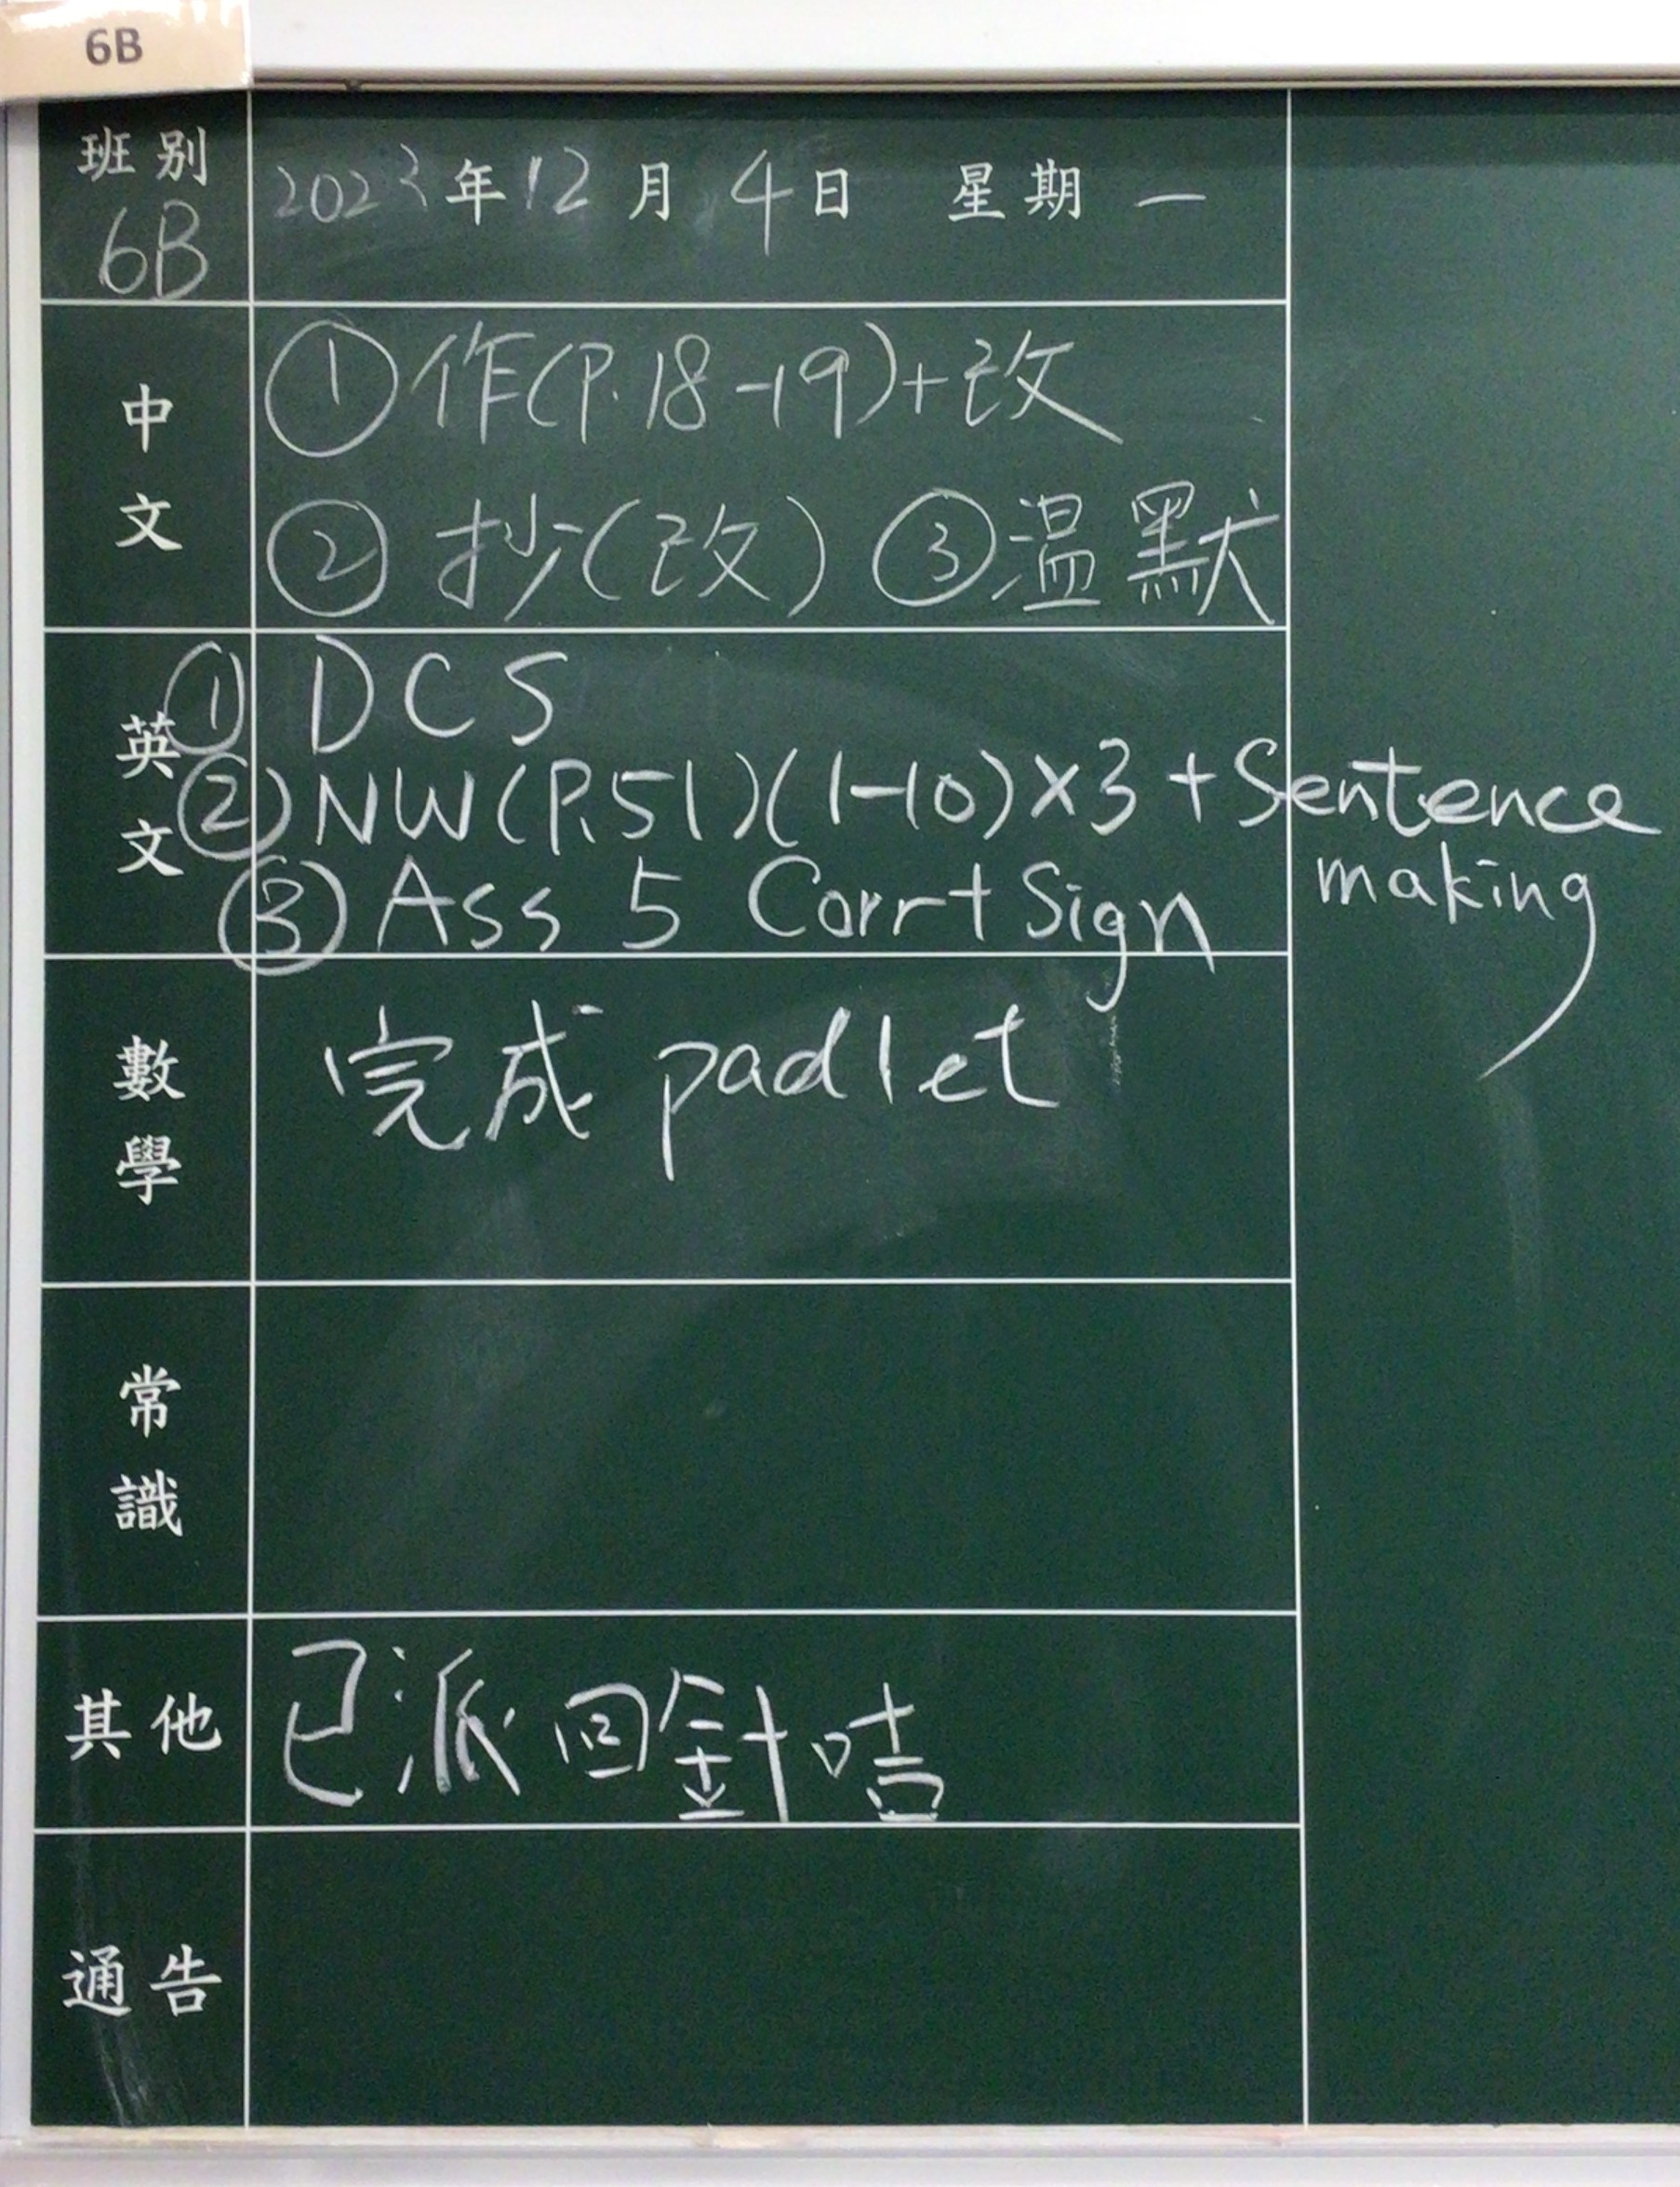 6B
班別 2023年12月4日 星期一
6B
中文
①作(P.18-19)+改
②抄(改) ③温默
英文
① DCS
② NW(P.51)(1-10)×3 + Sentence making
③ Ass 5 Corr+Sign
數學
完成 padlet
常識
其他
已派回針咭
通告